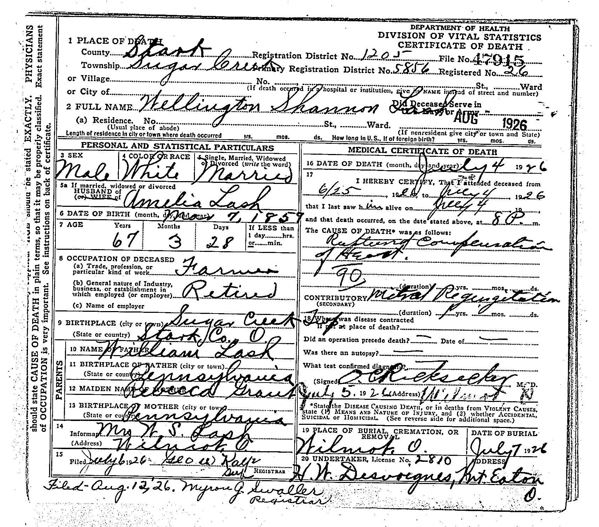 DEPARTMENT OF HEALTH
DIVISION OF VITAL STATISTICS
CERTIFICATE OF DEATH
1 PLACE OF DEATH
County Stark Registration District No. 1205 File No. 47915
Township Sugar Creek Primary Registration District No. 5856 Registered No. 26
or Village No. St., Ward
or City of (If death occurred in a hospital or institution, give NAME instead of street and number)
2 FULL NAME Wellington Shannon Lash Did Deceased Serve in
AUG 1926
(a) Residence. No. St., Ward.
(Usual place of abode) (If nonresident give city or town and State)
Length of residence in city or town where death occurred yrs. mos. ds. How long in U.S., if of foreign birth? yrs. mos. ds.
PERSONAL AND STATISTICAL PARTICULARS
3 SEX 4 COLOR OR RACE 5 Single, Married, Widowed
Divorced (write the word)
Male White Married
5a If married, widowed or divorced
HUSBAND of
(or) WIFE of Amelia Lash
6 DATE OF BIRTH (month, Mar 7, 1859
7 AGE Years Months Days If LESS than
1 day hrs.
or min.
67 3 28
8 OCCUPATION OF DECEASED
(a) Trade, profession, or
particular kind of work Farmer
(b) General nature of Industry,
business, or establishment in
which employed (or employer) Retired
(c) Name of employer
9 BIRTHPLACE (city or town) Sugar Creek Tp
(State or country) Stark Co, O
PARENTS
10 NAME OF FATHER William Lash
11 BIRTHPLACE OF FATHER (city or town)
(State or country) Pennsylvania
12 MAIDEN NAME Rebecca Grant
13 BIRTHPLACE OF MOTHER (city or town)
(State or country) Pennsylvania
14
Informant Mrs W. S. Lash
(Address) Wilmot O.
15
Filed July 6, 26 Geo W Kapr
REGISTRAR
Filed Aug. 12, 26. Myron G. Swaller
Registrar
MEDICAL CERTIFICATE OF DEATH
16 DATE OF DEATH (month, day and year) July 4 1926
17
I HEREBY CERTIFY, That I attended deceased from
6/25 1926 July 4 1926
that I last saw him alive on July 4
and that death occurred, on the date stated above, at 8 P. m.
The CAUSE OF DEATH* was as follows:
Compensation
of Heart
90
(duration) yrs. mos. ds.
CONTRIBUTORY Mitral Regurgitation
(SECONDARY) (duration) yrs. mos. ds.
18 Where was disease contracted
if not at place of death?
Did an operation precede death? —
Was there an autopsy? —
What test confirmed diagnosis?
(Signed) M. D.
July 5, 1926 (Address) Wilmot O
*State the DISEASE CAUSING DEATH, or in deaths from VIOLENT CAUSES,
state (1) MEANS AND NATURE OF INJURY, and (2) whether ACCIDENTAL,
SUICIDAL or HOMICIDAL. (See reverse side for additional space.)
19 PLACE OF BURIAL, CREMATION, OR REMOVAL DATE OF BURIAL
Wilmot O. July 7 1926
20 UNDERTAKER, License No. 2810 ADDRESS
H. W. Desvoignes, Mt. Eaton O.
should state CAUSE OF DEATH in plain terms, so that it may be properly classified. Exact statement
of OCCUPATION is very important. See instructions on back of certificate.